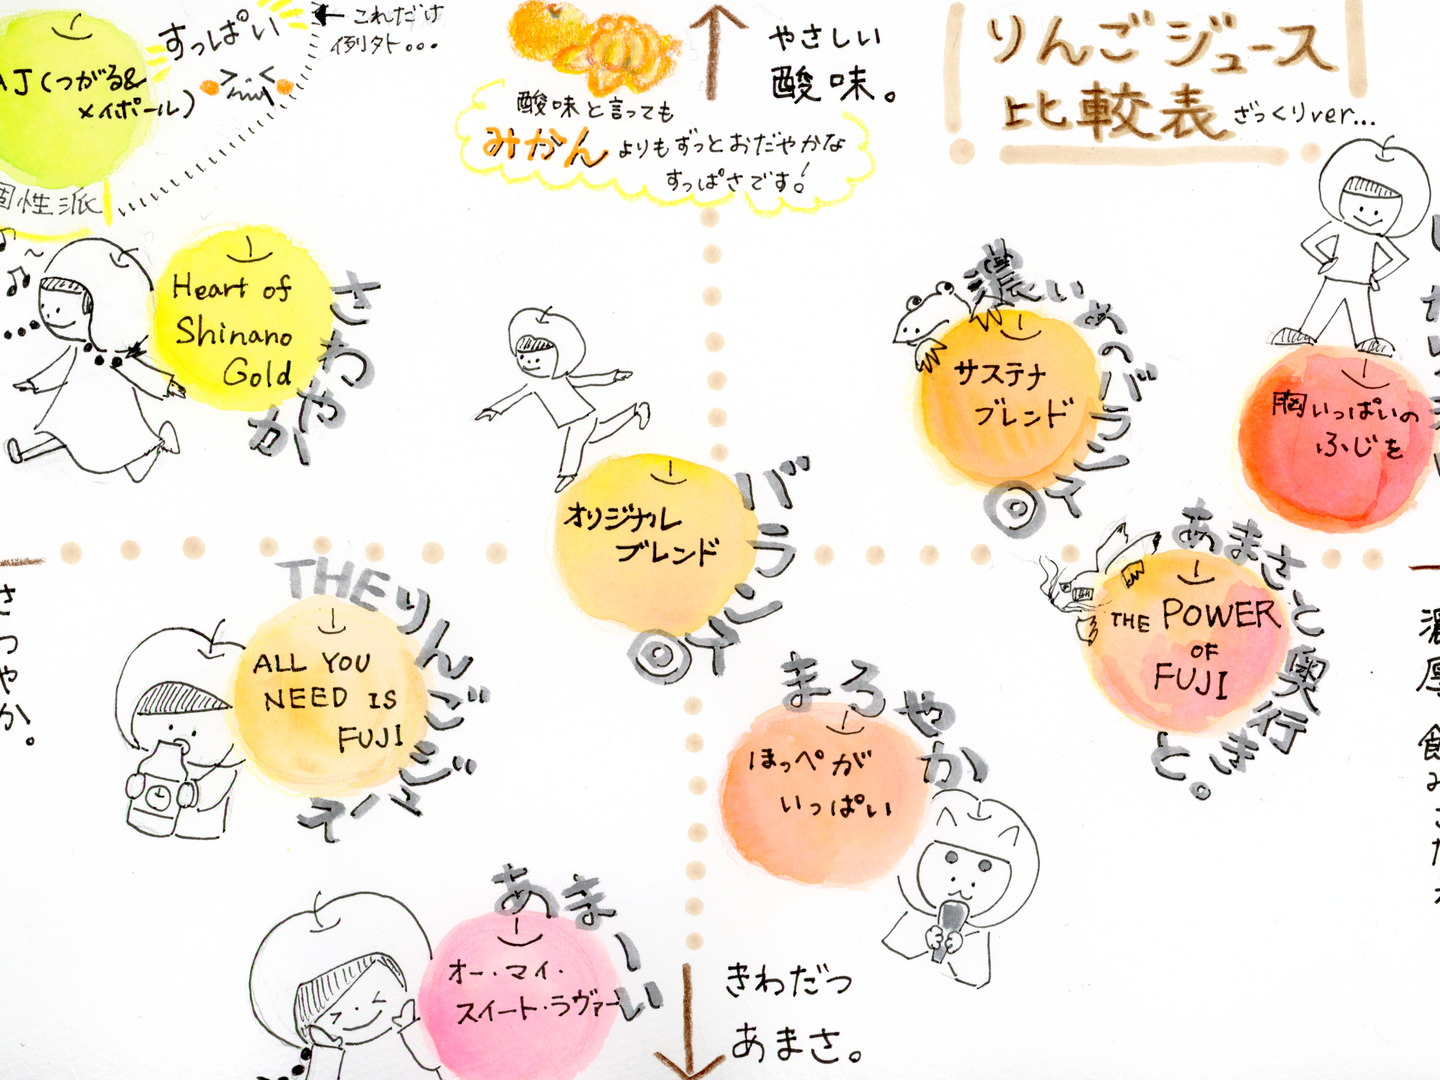 すっぱい
これだけ
例外...
AJ(つがる&
メイポール)
個性派
酸味と言っても
みかんよりもずっとおだやかな
すっぱさです!
やさしい
酸味。
りんごジュース
比較表 ざっくりver...
Heart of
Shinano
Gold
さわやか
サステナ
ブレンド
濃いめのバランス◎
胸いっぱいの
ふじを
オリジナル
ブレンド
バランス◎
THE POWER
OF
FUJI
あまさと奥行きと。
さっ
やか。
ALL YOU
NEED IS
FUJI
THEりんごジュース
ほっぺが
いっぱい
まろやか
濃厚
オー・マイ・
スイート・ラヴァー
あまーい
きわだつ
あまさ。